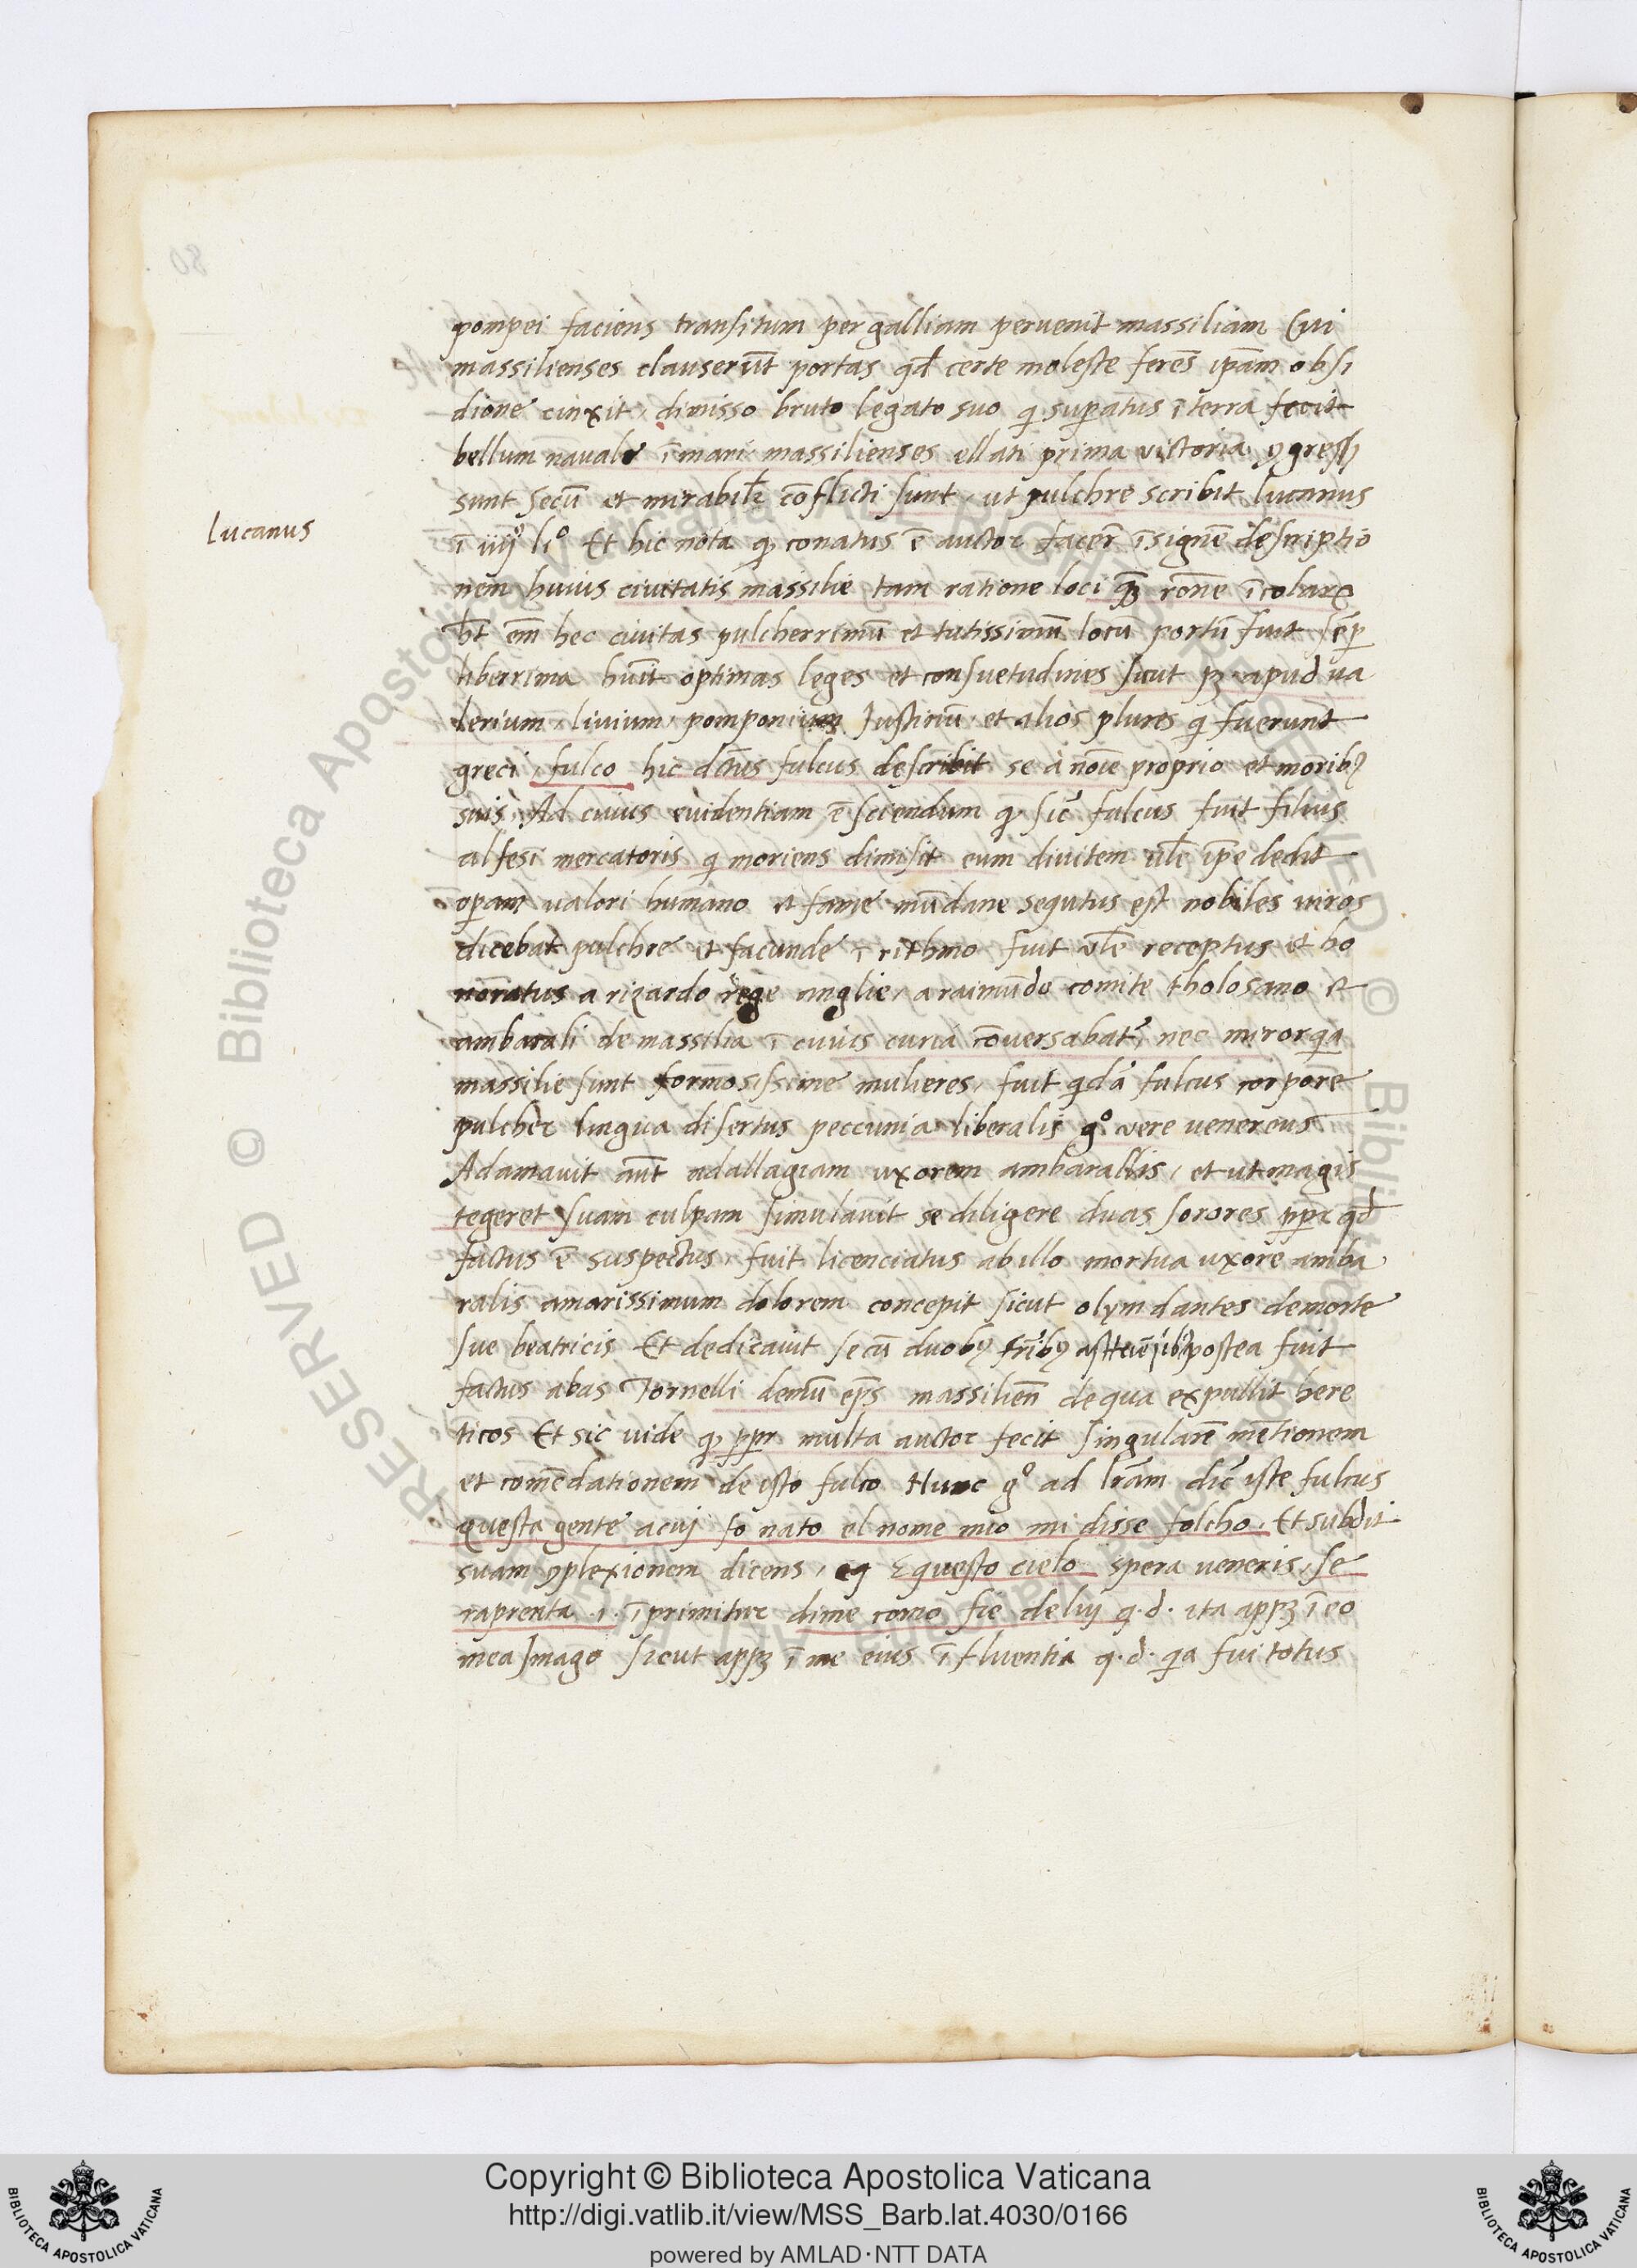 pompei faciens transitum per galliam peruenit massiliam Cui
massilienses clauserūt portas qd certe moleste ferēs ipām obsi
dione cinxit, dimisso bruto legato suo qi superatus ī terra fecit
bellum nauale ī mari massilienses ellati prima uictoria,
sunt secū et mirabilr cōflicti sunt, ut pulchre scribit lucanus
Lucanus
ī iiijº liº Et hic nota qp conatus ē auctor facer̄ īsignē descriptio
nem huius ciuitatis massilie tam ratione loci qȝ rōne īcolarꝝ
ht em̄ hec ciuitas pulcherrimū et tutissimū locū portū fuit sēp
liberrima huit optimas leges et consuetudines sicut pȝ apud ua
lerium, liuium, pomponium Justinū et alios plures qi fuerunt
greci, fulco hic dctus fulcus describit se a nōie proprio et moribꝫ
suis, Ad cuius euidentiam ē sciendum qp sic fulcus fuit filius
alfesi mercatoris qi moriens dimisit eum diuitem ipē dedit
opam ualori humano et fame mūdane sequtus est nobiles uiros
dicebat pulchre et facunde ī rithmo fuit receptus et ho
noratus a rizardo rege anglie, a raimūdo comite tholosano et
ambarali de massilia ī cuius curia cōuersabat̄, nec miror qia
massilie sunt formosissime mulieres, fuit qidā fulcus corpore
pulcher lingua disertus peccunia liberalis gº uere uenereus
Adamauit aūt adallagiam uxorem ambarallis, et ut magis
tegeret suam culpam simulauit se diligere duas sorores ppr qd
factus ē suspectus, fuit licenciatus ab illo mortua uxore amba
ralis amarissimum dolorem concepit sicut olym dantes de morte
sue beatricis Et dedicauit secū duobꝫ frībꝫ postea fuit
factus abas Tornelli demū ep̄s massilien̄ de qua expullit here
ticos Et sic uide qp ppr multa auctor fecit singularē mētionem
et comēdationem de isto fulco Hunc gº ad lr̄am dic̄ iste fulcus
questa gente acuj fo nato el nome mio mi disse folcho, Et subdit
suam ꝯplexionem dicens, Equesto cielo spera ueneris, se
raprenta .i. īprimitur dime como fie deluj q.d. ita appȝ ī eo
mea Jmago sicut appȝ ī me eius īfluentia q.d. qia fui totus
Copyright © Biblioteca Apostolica Vaticana
http://digi.vatlib.it/view/MSS_Barb.lat.4030/0166
powered by AMLAD·NTT DATA
BIBLIOTECA APOSTOLICA VATICANA
BIBLIOTECA APOSTOLICA VATICANA